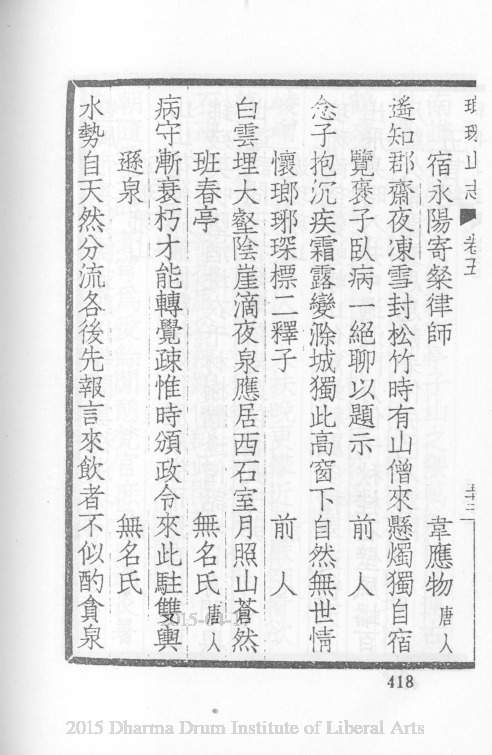 琅琊山志 卷五 五十二
宿永陽寄粲律師 韋應物 唐人
遙知郡齋夜凍雪封松竹時有山僧來懸燭獨自宿
覽褒子臥病一絕聊以題示 前人
念子抱沉疾霜露變滁城獨此高窗下自然無世情
懷瑯琊琛標二釋子 前人
白雲埋大壑陰崖滴夜泉應居西石室月照山蒼然
班春亭 無名氏 唐人
病守漸衰朽才能轉覺疎惟時頒政令來此駐雙輿
遜泉 無名氏
水勢自天然分流各後先報言來飲者不似酌貪泉
418
2015 Dharma Drum Institute of Liberal Arts